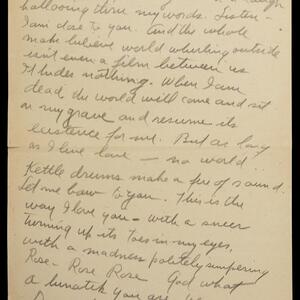 hallooing thru my words. Listen —
I am close to you. And the whole
make believe world whirling outside
isn't even a film between us
It hides nothing. When I am
dead the world will come and sit
on my grave and resume its
existence for me. But as long
as I live love — no world
Kettle drums make a pew of sound.
Let me bow to you. This is the
way I love you — with a sneer
turning up its toes in my eyes.
with a madness politely simpering
Rose — Rose Rose God what
a lunatik you are